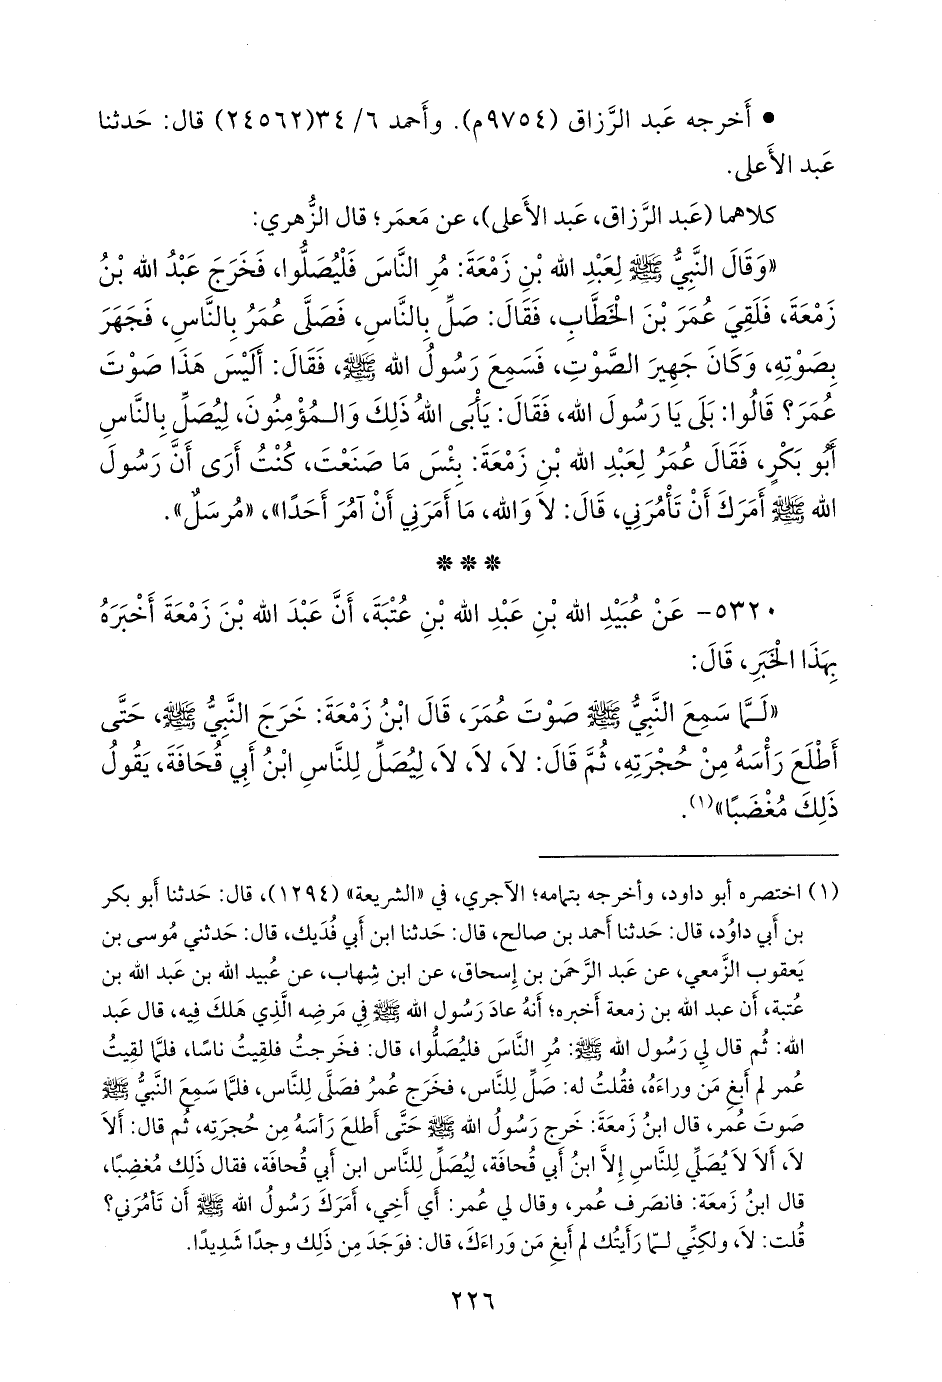 • أَخرجه عَبد الرَّزاق (٩٧٥٤م). وأَحمد ٦/ ٣٤(٢٤٥٦٢) قال: حَدثنا
عَبد الأَعلى.
كلاهما (عَبد الرَّزاق، عَبد الأَعلى)، عن مَعمَر؛ قال الزُّهري:
«وَقَالَ النَّبِيُّ ﷺ لِعَبْدِ الله بْنِ زَمْعَةَ: مُرِ النَّاسَ فَلْيُصَلُّوا، فَخَرَجَ عَبْدُ الله بْنُ
زَمْعَةَ، فَلَقِيَ عُمَرَ بْنَ الْخَطَّابِ، فَقَالَ: صَلِّ بِالنَّاسِ، فَصَلَّى عُمَرُ بِالنَّاسِ، فَجَهَرَ
بِصَوْتِهِ، وَكَانَ جَهِيرَ الصَّوْتِ، فَسَمِعَ رَسُولُ الله ﷺ، فَقَالَ: أَلَيْسَ هَذَا صَوْتَ
عُمَرَ؟ قَالُوا: بَلَى يَا رَسُولَ الله، فَقَالَ: يَأْبَى اللهُ ذَلِكَ وَالْـمُؤْمِنُونَ، لِيُصَلِّ بِالنَّاسِ
أَبُو بَكْرٍ، فَقَالَ عُمَرُ لِعَبْدِ الله بْنِ زَمْعَةَ: بِئْسَ مَا صَنَعْتَ، كُنْتُ أَرَى أَنَّ رَسُولَ
الله ﷺ أَمَرَكَ أَنْ تَأْمُرَنِي، قَالَ: لاَ وَالله، مَا أَمَرَنِي أَنْ آمُرَ أَحَدًا»، «مُرسَلٌ».
* * *
٥٣٢٠- عَنْ عُبَيْدِ الله بْنِ عَبْدِ الله بْنِ عُتْبَةَ، أَنَّ عَبْدَ الله بْنَ زَمْعَةَ أَخْبَرَهُ
بِهَذَا الْخَبَرِ، قَالَ:
«لَـمَّا سَمِعَ النَّبِيُّ ﷺ صَوْتَ عُمَرَ، قَالَ ابْنُ زَمْعَةَ: خَرَجَ النَّبِيُّ ﷺ، حَتَّى
أَطْلَعَ رَأْسَهُ مِنْ حُجْرَتِهِ، ثُمَّ قَالَ: لاَ، لاَ، لاَ، لِيُصَلِّ لِلنَّاسِ ابْنُ أَبِي قُحَافَةَ، يَقُولُ
ذَلِكَ مُغْضَبًا»(١).
(١) اختصره أبو داود، وأخرجه بتمامه؛ الآجري، في «الشريعة» (١٢٩٤)، قال: حَدثنا أَبو بكر
بن أَبي داوُد، قال: حَدثنا أَحمد بن صالح، قال: حَدثنا ابن أَبي فُدَيك، قال: حَدثني مُوسى بن
يَعقوب الزَّمعي، عن عَبد الرَّحمَن بن إِسحاق، عن ابن شِهاب، عن عُبيد الله بن عَبد الله بن
عُتبة، أن عبد الله بن زمعة أخبره؛ أنهُ عادَ رَسُول الله ﷺ في مَرضِه الَّذي هَلكَ فيه، قال عَبد
الله: ثُم قال لي رَسُول الله ﷺ: مُرِ النَّاسَ فليُصَلُّوا، قال: فخَرجتُ فلقِيتُ ناسًا، فلمَّا لقِيتُ
عُمر لم أَبغِ مَن وراءَهُ، فقُلتُ له: صَلِّ لِلنَّاس، فخَرَج عُمرُ فصَلَّى لِلنَّاس، فلمَّا سَمِعَ النَّبيُّ ﷺ
صَوتَ عُمر، قال ابنُ زَمعَةَ: خَرج رَسُولُ الله ﷺ حَتَّى أَطلعَ رَأسَهُ مِن حُجرَتِه، ثُم قال: أَلاَ
لاَ، أَلاَ لاَ يُصَلِّي لِلنَّاسِ إِلاَّ ابنُ أَبي قُحافَة، لِيُصَلِّ لِلنَّاس ابن أَبي قُحافَة، فقال ذَلِك مُغضِبًا،
قال ابنُ زَمعَة: فانصَرف عُمر، وقال لي عُمر: أَي أَخِي، أَمَرَكَ رَسُولُ الله ﷺ أَن تَأمُرَني؟
قُلت: لاَ، ولكِنِّي لـمَّا رَأَيتُك لم أَبغِ مَن وَراءَكَ، قال: فوَجَدَ مِن ذَلِك وجدًا شَدِيدًا.
٢٢٦